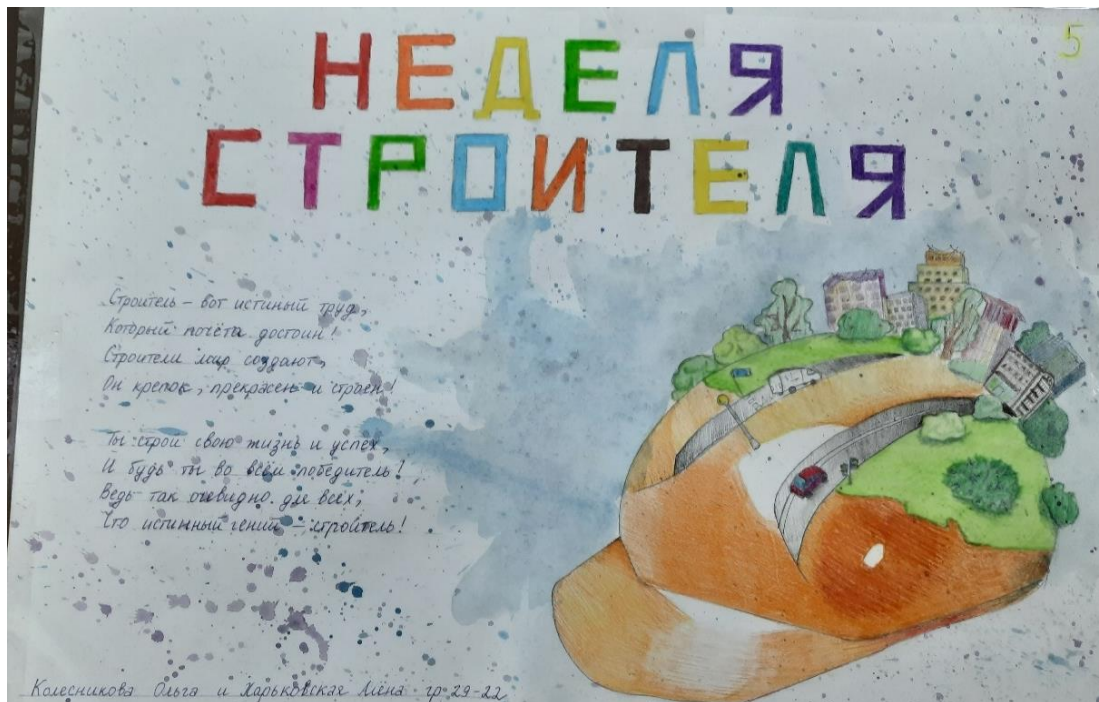 5
НЕДЕЛЯ
СТРОИТЕЛЯ
Строитель – вот истиный труд,
Который почёта достоин!
Строители мир создают,
Он крепок, прекрасен и строен!
Ты строй свою жизнь и успех,
И будь ты во всём победитель!
Ведь так очевидно для всех,
Что истинный гений – строитель!
Колесникова Ольга и Харьковская Алёна гр 29-22